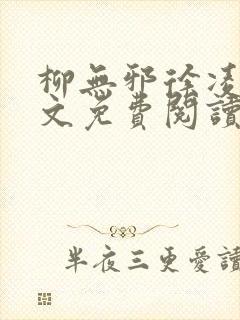 柳無邪徐凌
文免費閱讀
半夜三更愛讀